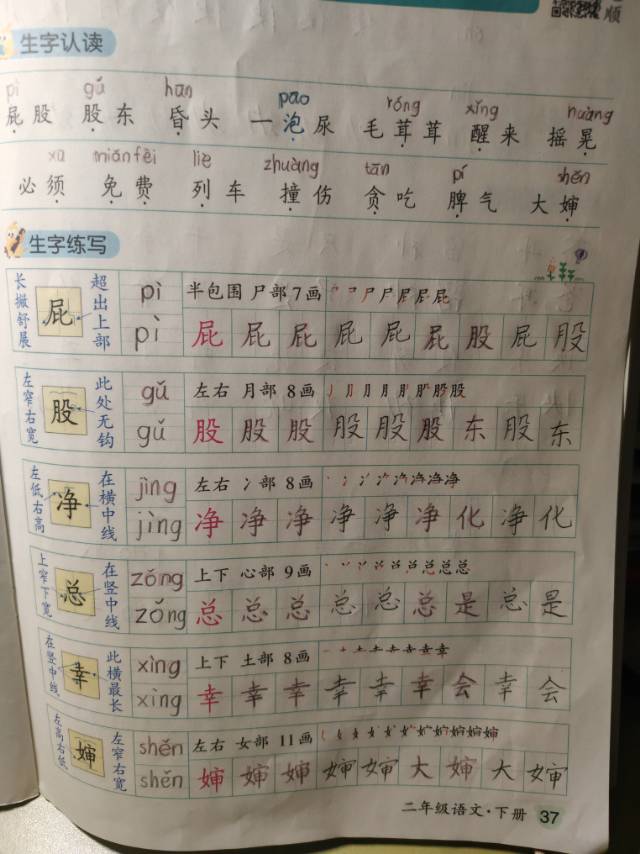 顺
生字认读
pì gǔ hūn pao róng xǐng huàng
屁股 股东 昏头 一泡尿 毛茸茸 醒来 摇晃
xū miǎnfèi liè zhuàng tān pí shěn
必须 免费 列车 撞伤 贪吃 脾气 大婶
生字练写
长撇舒展 屁 超出上部 pì 半包围 尸部 7画
pì 屁 屁 屁 屁 屁 屁 股 屁 股
左窄右宽 股 此处无钩 gǔ 左右 月部 8画
gǔ 股 股 股 股 股 股 东 股 东
左低右高 净 在横中线 jìng 左右 冫部 8画
jìng 净 净 净 净 净 净 化 净 化
上窄下宽 总 在竖中线 zǒng 上下 心部 9画
zǒng 总 总 总 总 总 总 是 总 是
在竖中线 幸 此横最长 xìng 上下 土部 8画
xìng 幸 幸 幸 幸 幸 幸 会 幸 会
左高右低 婶 左窄右宽 shěn 左右 女部 11画
shěn 婶 婶 婶 婶 婶 大 婶 大 婶
二年级语文·下册 37